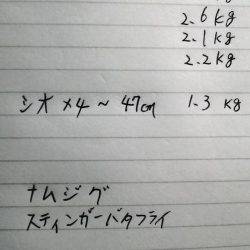 2.6kg
2.1kg
2.2kg
シオ×4～47cm 1.3kg
ナムジグ
スティンガーバタフライ